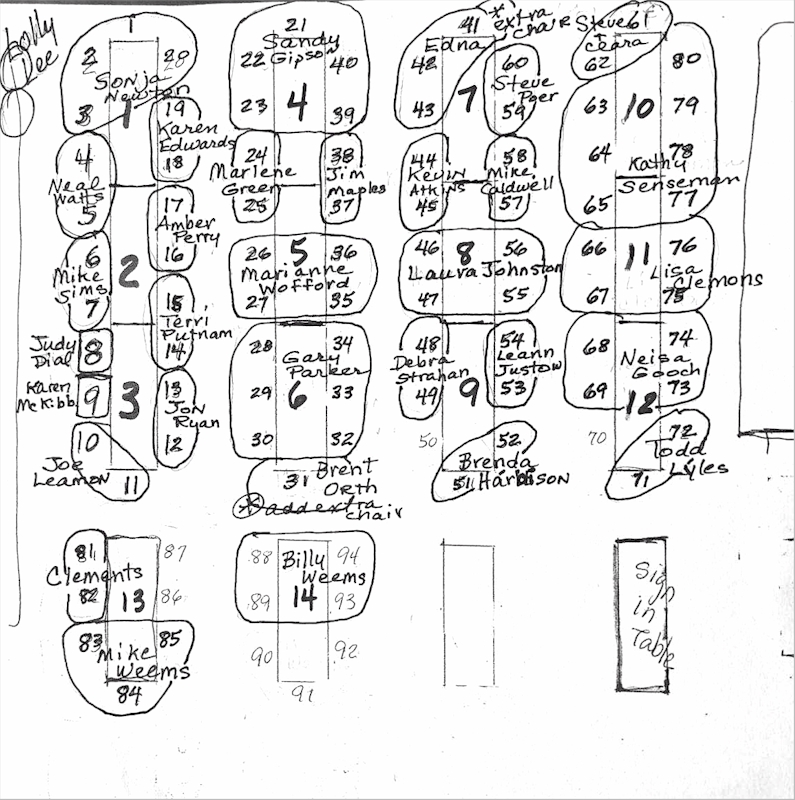 Lolly
Lee
1
2
28
Sonja
Newton
3
1
19
Karen
Edwards
18
4
Neal
Watts
5
17
Amber
Perry
16
2
6
Mike
Sims
7
15
Terri
Putnam
14
Judy
Dial
8
Karen
McKibb
9
3
13
Jon
Ryan
12
10
Joe
Leamon
11
21
Sandy
Gipson
22
40
23
4
39
24
Marlene
Green
25
38
Jim
Maples
37
26
5
36
Marianne
Wofford
27
35
28
34
Gary
Parker
29
6
33
30
32
31
Brent
Orth
* add extra
chair
41
* extra
chair
Edna
42
60
Steve
Poer
43
7
59
44
Kevin
Atkins
45
58
Mike
Caldwell
57
46
8
56
Laura Johnston
47
55
48
Debra
Strahan
49
54
Leann
Justow
53
9
50
52
Brenda
Harbison
51
Steve 61
+
Ceara
62
80
63
10
79
64
78
Kathy
Senseman
65
77
66
11
76
Lisa
Clemons
67
75
68
74
Neisa
Gooch
69
12
73
70
72
Todd
Lyles
71
81
87
Clements
82
13
86
83
85
Mike
Weems
84
88
Billy
94
Weems
89
14
93
90
92
91
Sign
in
Table